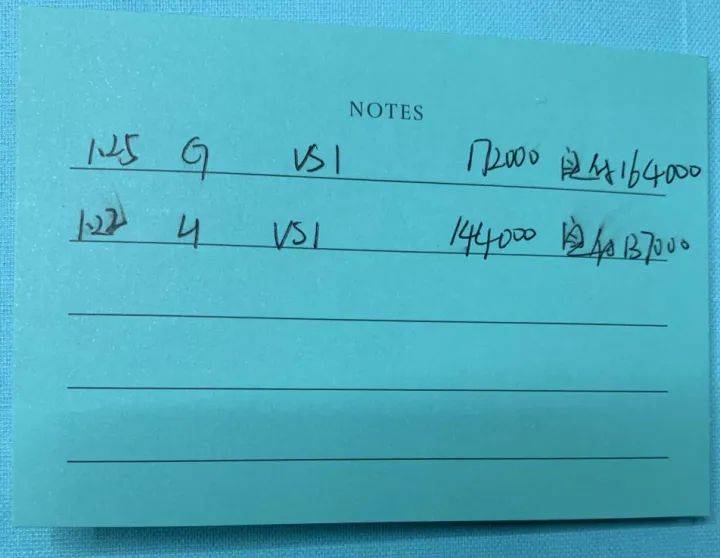 NOTES
1.25 G VS1 172000 自付164000
1.22 H VS1 144000 自付137000